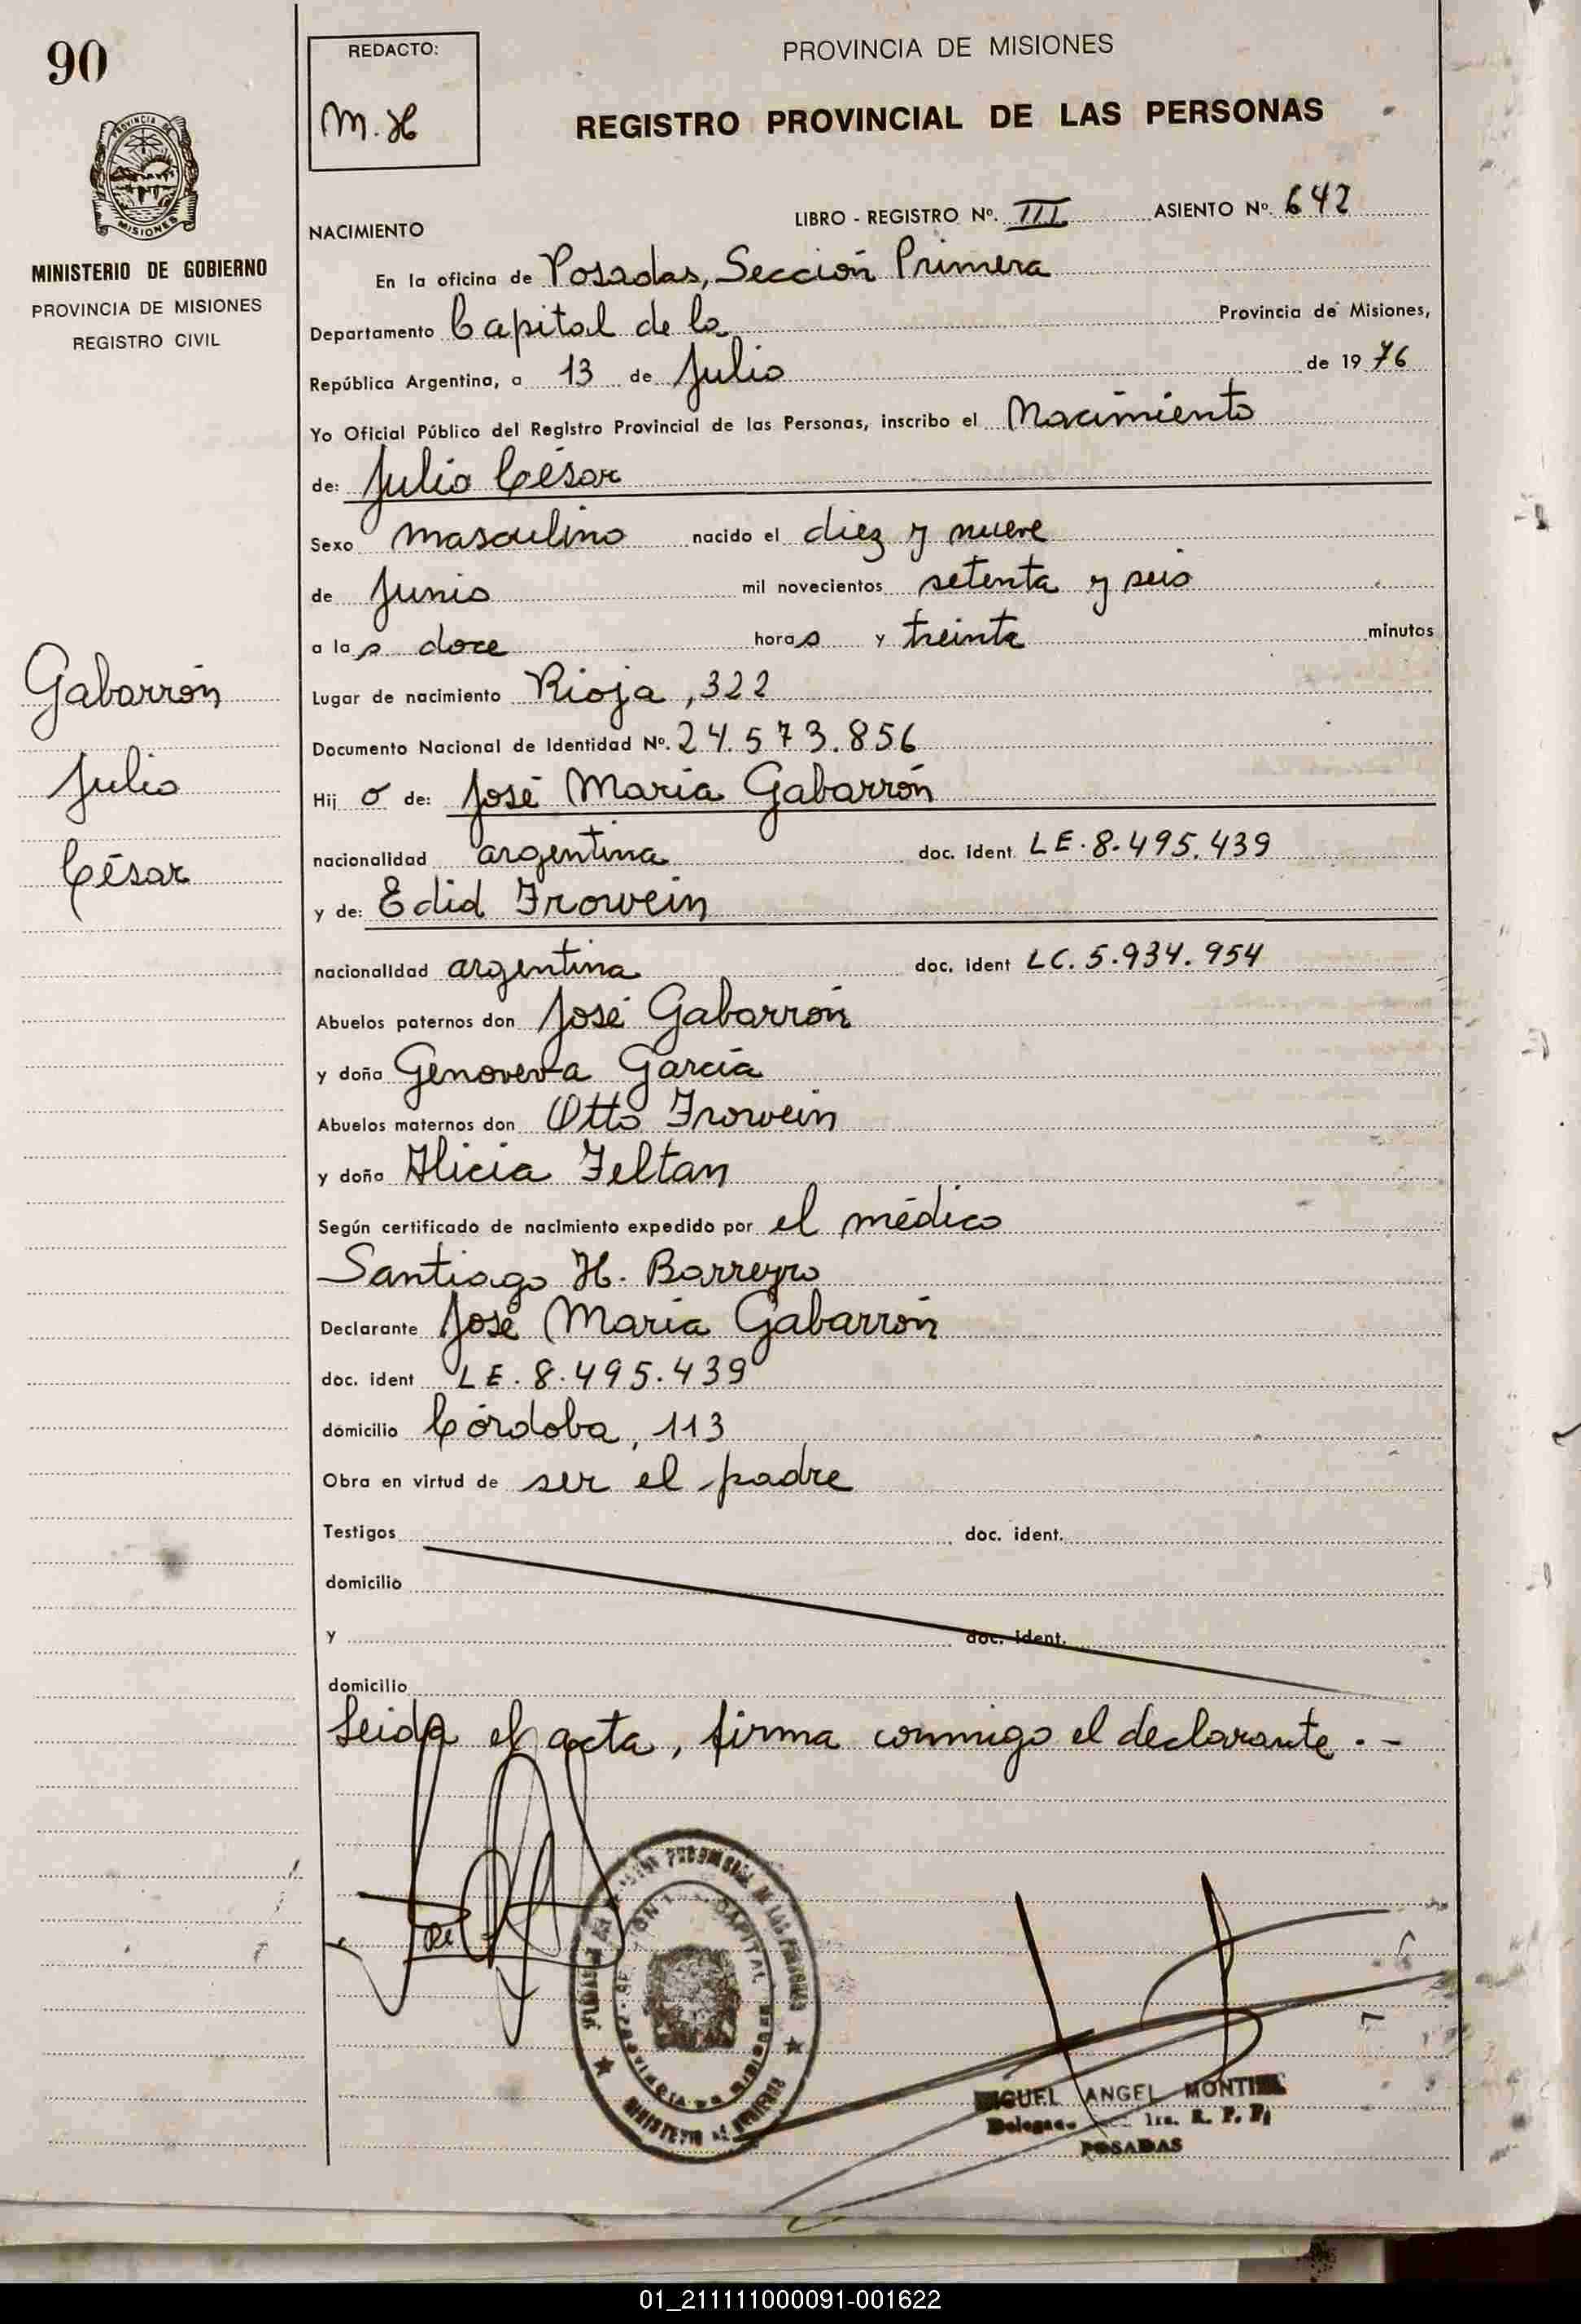 90
REDACTO:
M.H
PROVINCIA DE MISIONES
REGISTRO PROVINCIAL DE LAS PERSONAS
PROVINCIA DE
MISIONES
MINISTERIO DE GOBIERNO
PROVINCIA DE MISIONES
REGISTRO CIVIL
Gabarrón
Julio
César
NACIMIENTO
LIBRO - REGISTRO Nº. III ASIENTO Nº. 642
En la oficina de Posadas, Sección Primera
Departamento Capital de la Provincia de Misiones,
República Argentina, a 13 de Julio de 1976
Yo Oficial Público del Registro Provincial de las Personas, inscribo el Nacimiento
de: Julio César
Sexo masculino nacido el diez y nueve
de Junio mil novecientos setenta y seis
a las doce horas y treinta minutos
Lugar de nacimiento Rioja, 322
Documento Nacional de Identidad Nº. 24.573.856
Hijo de: José María Gabarrón
nacionalidad argentina doc. ident LE.8.495.439
y de: Edid Frowein
nacionalidad argentina doc. ident LC.5.934.954
Abuelos paternos don José Gabarrón
y doña Genoveva García
Abuelos maternos don Otto Frowein
y doña Alicia Feltan
Según certificado de nacimiento expedido por el médico
Santiago H. Barreyro
Declarante José María Gabarrón
doc. ident LE.8.495.439
domicilio Córdoba, 113
Obra en virtud de ser el padre
Testigos doc. ident.
domicilio
y doc. ident.
domicilio
Leida el acta, firma conmigo el declarante.-
CAPITAL
PROVINCIA DE MISIONES
MINISTERIO DE GOBIERNO
MIGUEL ANGEL MONTIEL
1ra. R. P. P.
POSADAS
01_211111000091-001622